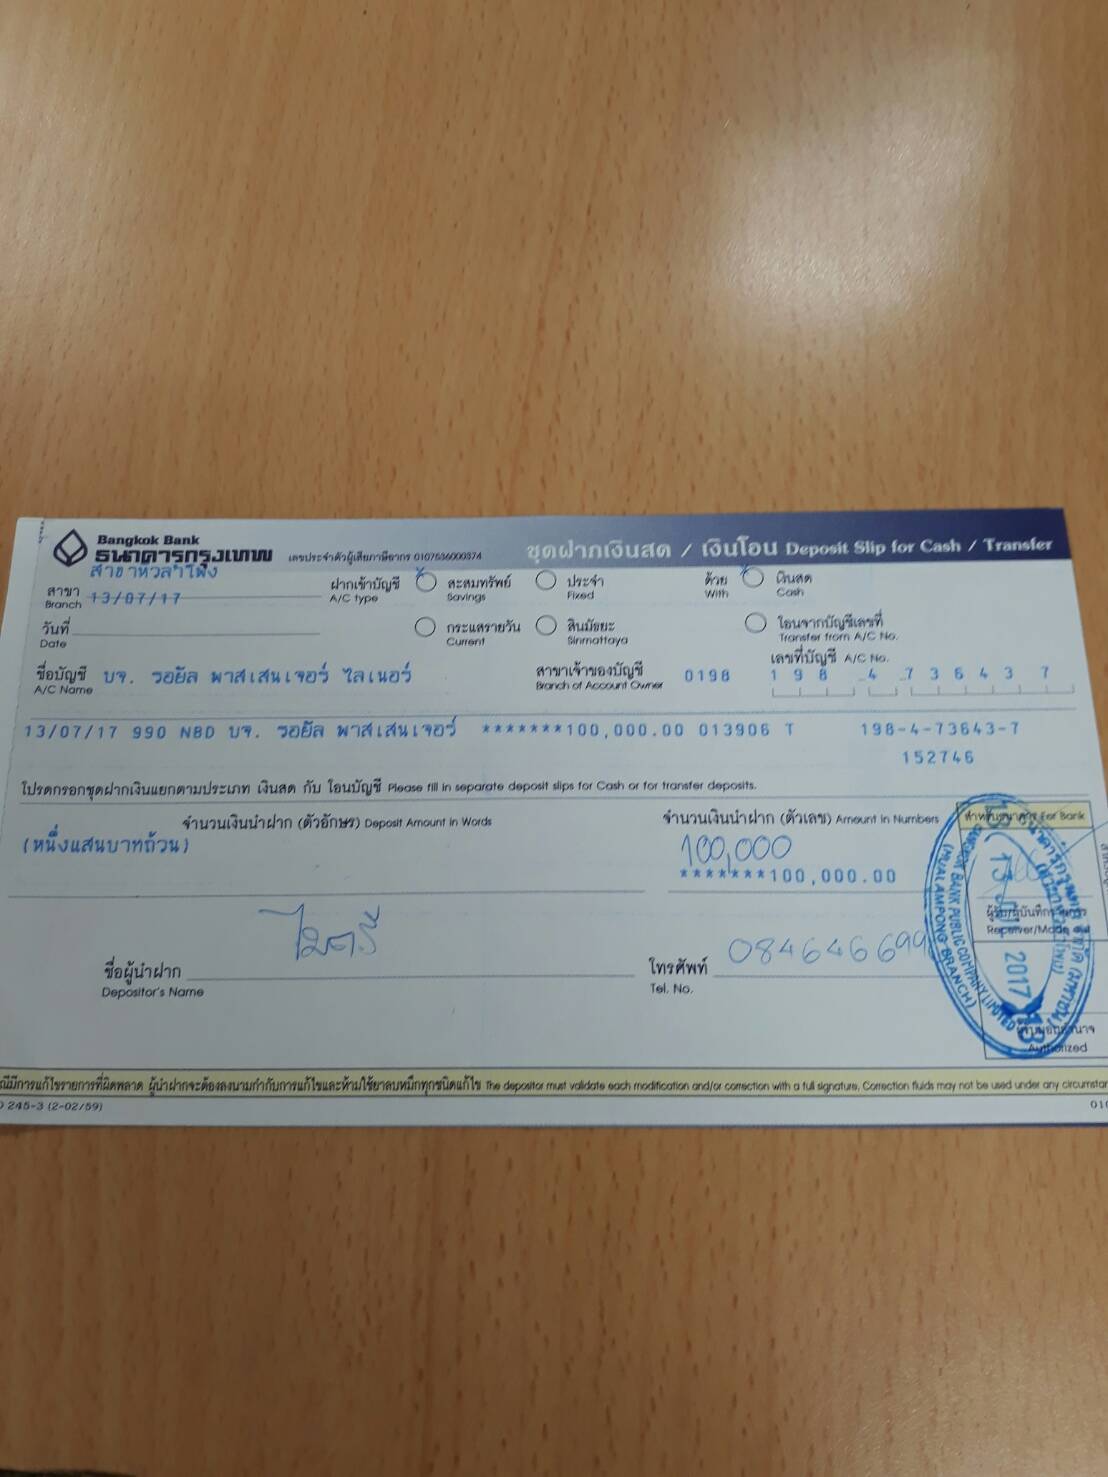 Bangkok Bank
ธนาคารกรุงเทพ
เลขประจำตัวผู้เสียภาษีอากร 0107536000374
ชุดฝากเงินสด / เงินโอน Deposit Slip for Cash / Transfer
สาขาหัวลำโพง
สาขา
Branch
13/07/17
ฝากเข้าบัญชี
A/C type
สะสมทรัพย์
Savings
ประจำ
Fixed
ด้วย
With
เงินสด
Cash
วันที่
Date
กระแสรายวัน
Current
สินมัธยะ
Sinmattaya
โอนจากบัญชีเลขที่
Transfer from A/C No.
ชื่อบัญชี
A/C Name
บจ. รอยัล พาสเสนเจอร์ ไลเนอร์
สาขาเจ้าของบัญชี
Branch of Account Owner
0198
เลขที่บัญชี A/C No.
1 9 8 4 7 3 6 4 3 7
13/07/17 990 NBD บจ. รอยัล พาสเสนเจอร์ *******100,000.00 013906 T 198-4-73643-7
152746
โปรดกรอกชุดฝากเงินแยกตามประเภท เงินสด กับ โอนบัญชี Please fill in separate deposit slips for Cash or for transfer deposits.
จำนวนเงินนำฝาก (ตัวอักษร) Deposit Amount in Words
จำนวนเงินนำฝาก (ตัวเลข) Amount in Numbers
สำหรับธนาคาร For Bank
(หนึ่งแสนบาทถ้วน)
100,000
*******100,000.00
Receiver/Made
BANGKOK BANK PUBLIC COMPANY LIMITED
(HUALAMPONG BRANCH)
13 2017
ชื่อผู้นำฝาก
Depositor's Name
โทรศัพท์
Tel. No.
084646699
Authorized
ผู้นำฝากจะต้องลงนามกำกับการแก้ไขและห้ามใช้ยาลบหมึกทุกชนิดแก้ไข The depositor must validate each modification and/or correction with a full signature. Correction fluids may not be used under any
245-3 (2-02/59)